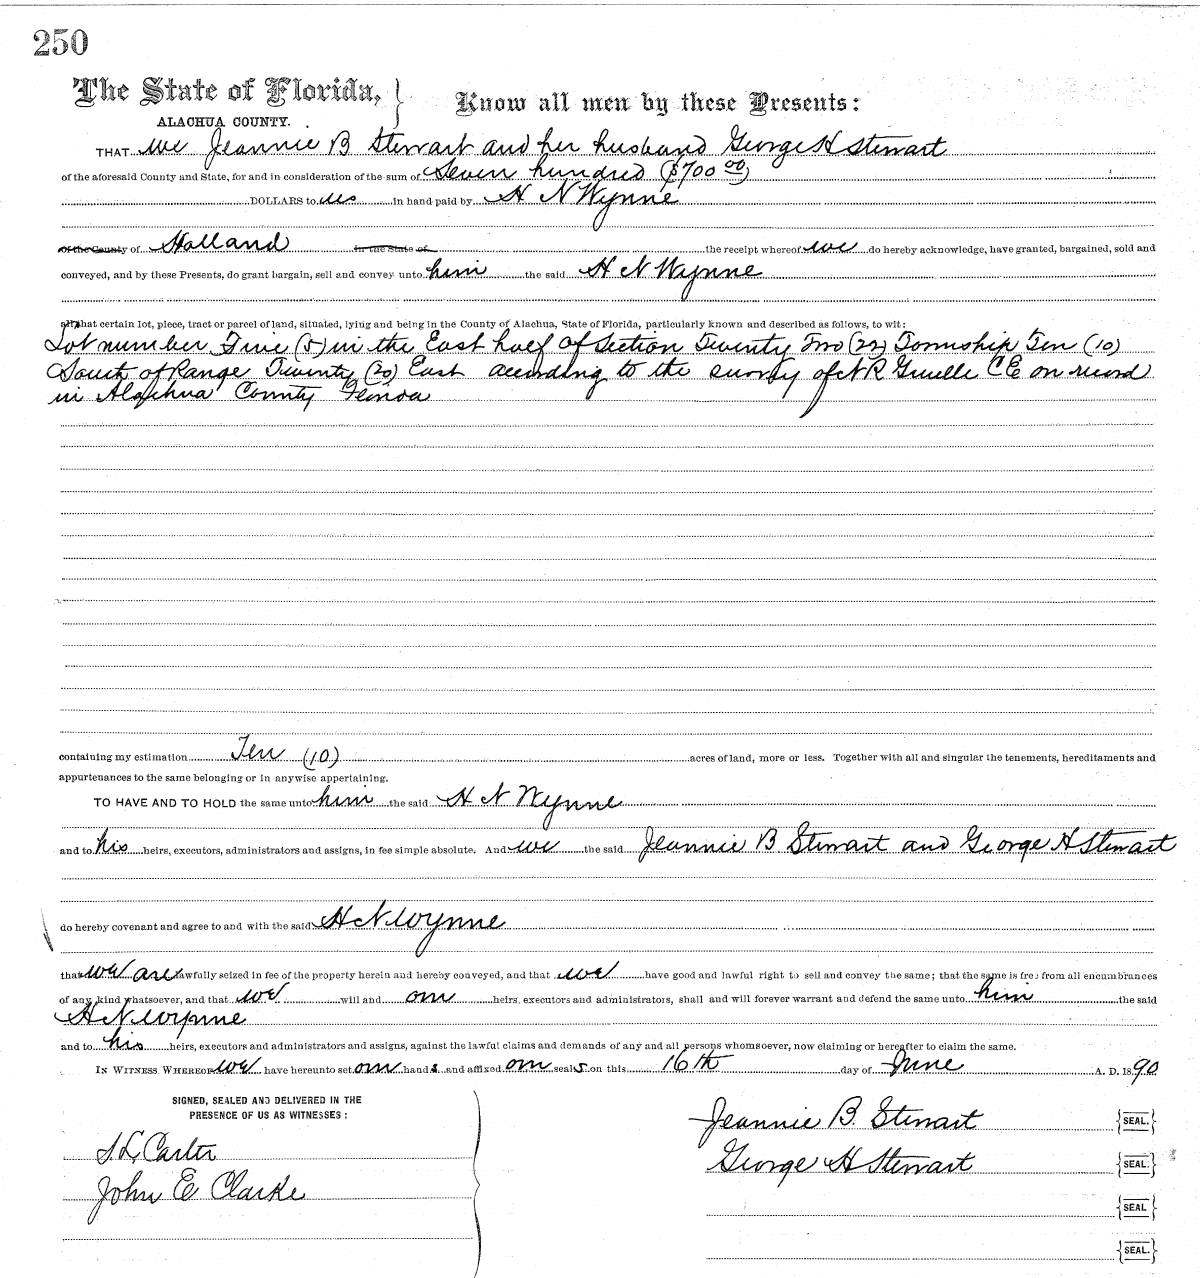 250
The State of Florida,
ALACHUA COUNTY.
Know all men by these Presents:
THAT we Jeannie B Stewart and her husband George H Stewart
of the aforesaid County and State, for and in consideration of the sum of Seven hundred ($700 00)
DOLLARS to us in hand paid by H N Wynne
of the County of Holland in the State of the receipt whereof we do hereby acknowledge, have granted, bargained, sold and
conveyed, and by these Presents, do grant bargain, sell and convey unto him the said H N Wynne
all that certain lot, piece, tract or parcel of land, situated, lying and being in the County of Alachua, State of Florida, particularly known and described as follows, to wit:
Lot number Five (5) in the East half of Section Twenty Two (22) Township Ten (10)
South of Range Twenty (20) East according to the survey of N R Gruelle C E on record
in Alachua County Florida
containing my estimation Ten (10) acres of land, more or less. Together with all and singular the tenements, hereditaments and
appurtenances to the same belonging or in anywise appertaining.
TO HAVE AND TO HOLD the same unto him the said H N Wynne
and to his heirs, executors, administrators and assigns, in fee simple absolute. And we the said Jeannie B Stewart and George H Stewart
do hereby covenant and agree to and with the said H N Wynne
that we are lawfully seized in fee of the property herein and hereby conveyed, and that we have good and lawful right to sell and convey the same; that the same is free from all encumbrances
of any kind whatsoever, and that we will and our heirs, executors and administrators, shall and will forever warrant and defend the same unto him the said
H N Wynne
and to his heirs, executors and administrators and assigns, against the lawful claims and demands of any and all persons whomsoever, now claiming or hereafter to claim the same.
IN WITNESS WHEREOF we have hereunto set our hands and affixed our seals on this 16th day of June A. D. 1890
SIGNED, SEALED AND DELIVERED IN THE
PRESENCE OF US AS WITNESSES:
Jeannie B. Stewart SEAL.
S L Carter
George H Stewart SEAL.
John E Clarke
SEAL.
SEAL.